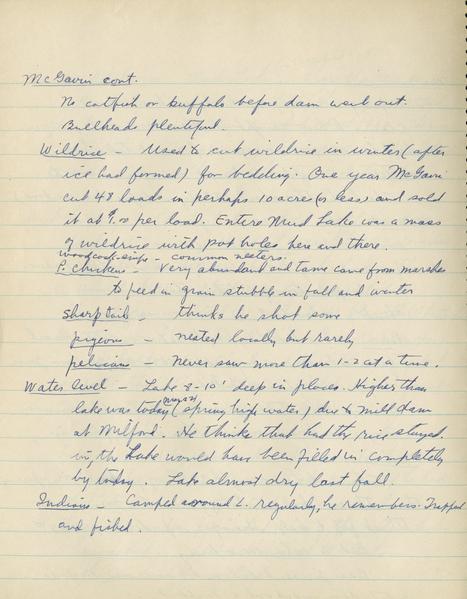 McGavin cont.
No catfish or buffalo before dam went out.
Bullheads plentiful.
Wildrice - Used to cut wildrice in winter (after
ice had formed) for bedding. One year McGavin
cut 48 loads in perhaps 10 acre (or less) and sold
it at per load. Entire Mud Lake was a mass
of wildrice with pot holes here and there.
woodcock-snipe - common nesters.
P. chickens - Very abundant and tame came from marshes
to feed in grain stubble in fall and winter
sharptail - thinks he shot some
pigeons - nested locally but rarely
pelicans - never saw more than 1-2 at a time.
Water level - Lake 8-10' deep in places. Higher than
lake was today (spring high water) due to mill dam
at Milford. He thinks that had the rice stayed
in, the Lake would have been filled in completely
by today. Lake almost dry last fall.
Indians - Camped around L. regularly, he remembers. Trapped
and fished.